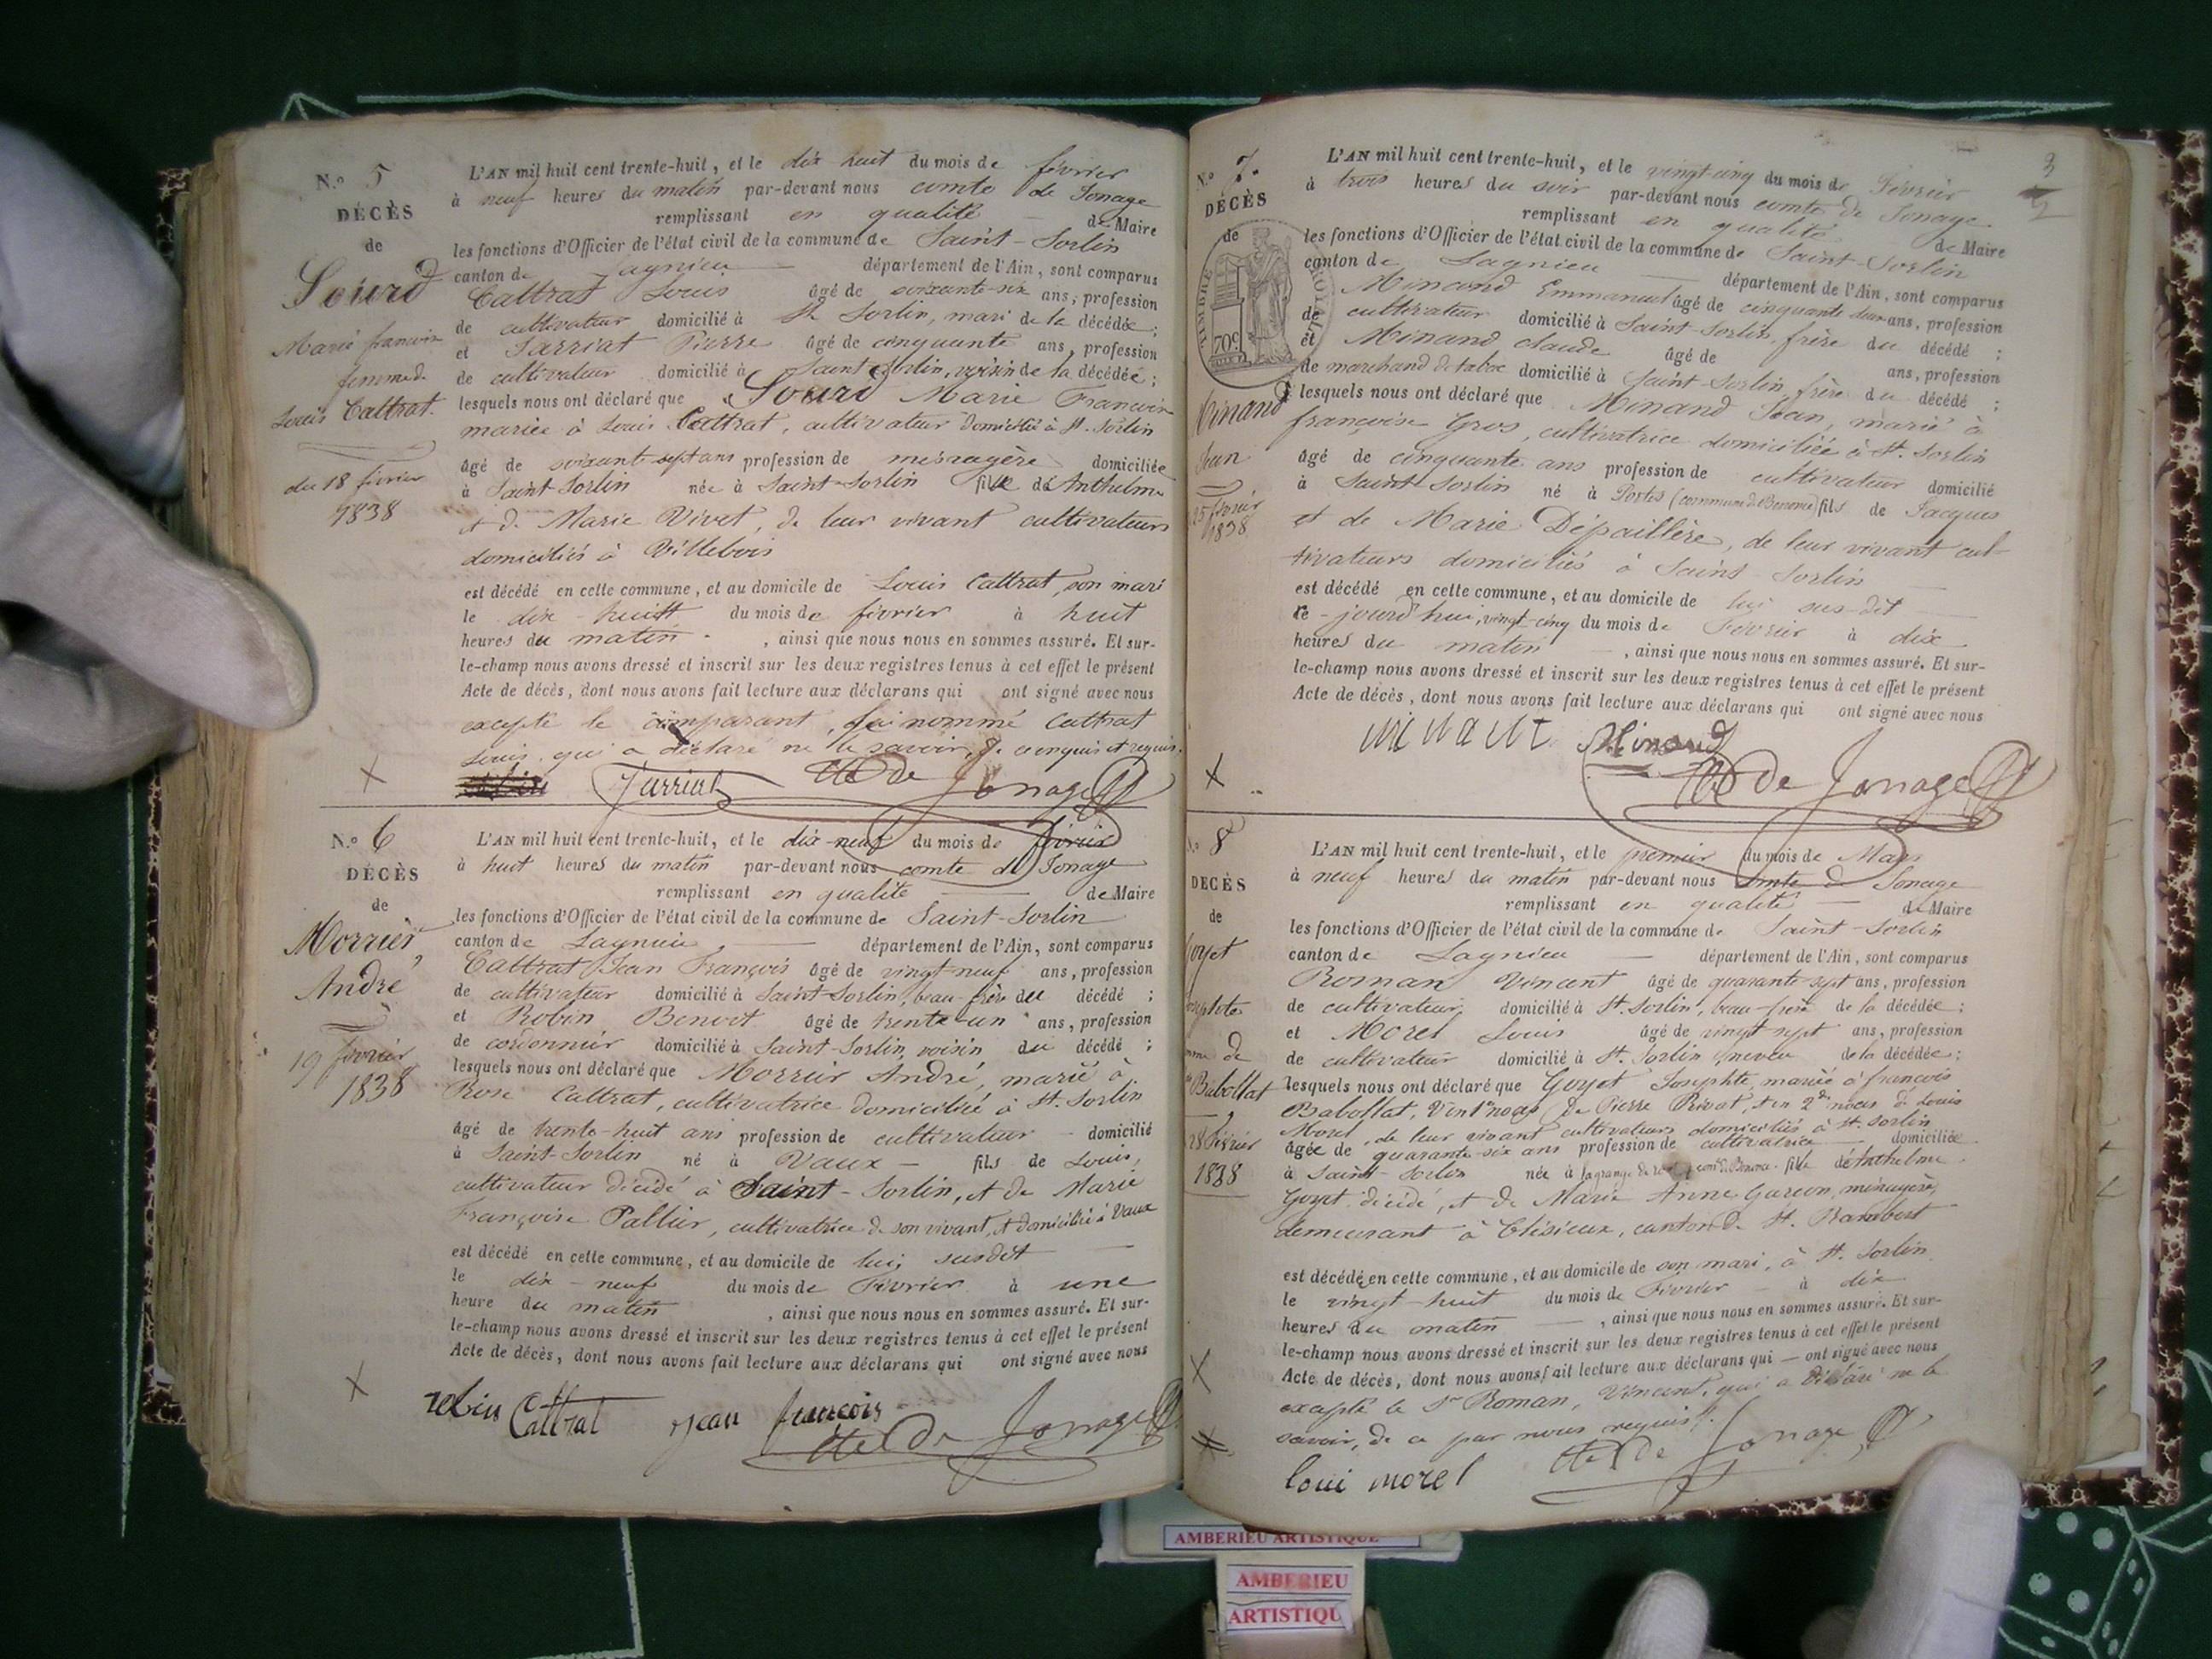 N.o 5
DÉCÈS
de
Sourd
Marie francoise
femme de
Louis Cattrat.
du 18 février
1838
L'AN mil huit cent trente-huit, et le dix huit du mois de février
à neuf heures du matin par-devant nous comte de Jonage
remplissant en qualité de Maire
les fonctions d'Officier de l'état civil de la commune de Saint-Sorlin
canton de Lagnieu département de l'Ain, sont comparus
Cattrat Louis âgé de soixante-six ans, profession
de cultivateur domicilié à St Sorlin, mari de la décédée;
et Jarriat Pierre âgé de cinquante ans, profession
de cultivateur domicilié à Saint Sorlin, voisin de la décédée;
lesquels nous ont déclaré que Sourd Marie Francoise
mariée à Louis Cattrat, cultivateur domicilié à St. Sorlin
âgé de soixante-sept ans profession de ménagère domiciliée
à Saint-Sorlin née à Saint-Sorlin fille de Anthelme
et de Marie Vivet, de leur vivant cultivateurs
domiciliés à Villebois
est décédé en cette commune, et au domicile de Louis Cattrat, son mari
le dix-huit du mois de février à huit
heures du matin, ainsi que nous nous en sommes assuré. Et sur-
le-champ nous avons dressé et inscrit sur les deux registres tenus à cet effet le présent
Acte de décès, dont nous avons fait lecture aux déclarans qui ont signé avec nous
excepté le comparant, susnommé Cattrat
Louis, qui a déclaré ne le savoir, de ce enquis et requis.
Jarriat Cte de Jonage
N.o 6
DÉCÈS
de
Morrier,
André
19 février
1838
L'AN mil huit cent trente-huit, et le dix-neuf du mois de février
à huit heures du matin par-devant nous comte de Jonage
remplissant en qualité de Maire
les fonctions d'Officier de l'état civil de la commune de Saint-Sorlin
canton de Lagnieu département de l'Ain, sont comparus
Cattrat Jean François âgé de vingt-neuf ans, profession
de cultivateur domicilié à Saint-Sorlin, beau-frère du décédé;
et Robin Benoit âgé de trente-un ans, profession
de cordonnier domicilié à Saint-Sorlin, voisin du décédé;
lesquels nous ont déclaré que Morrier André, marié à
Rose Cattrat, cultivatrice domiciliée à St. Sorlin
âgé de trente-huit ans profession de cultivateur domicilié
à Saint-Sorlin né à Vaux fils de Louis,
cultivateur décédé à Saint-Sorlin, et de Marie
Françoise Pallier, cultivatrice de son vivant, et domiciliée à Vaux
est décédé en cette commune, et au domicile de lui, susdit
le dix-neuf du mois de Février à une
heure du matin, ainsi que nous nous en sommes assuré. Et sur-
le-champ nous avons dressé et inscrit sur les deux registres tenus à cet effet le présent
Acte de décès, dont nous avons fait lecture aux déclarans qui ont signé avec nous
robin Cattrat jean françois
Cte de Jonage
3
N.o 7.
DÉCÈS
de
TIMBRE ROYAL
70c
Minand
Jean
25 février
1838
L'AN mil huit cent trente-huit, et le vingt-cinq du mois de Février
à trois heures du soir par-devant nous comte de Jonage
remplissant en qualité de Maire
les fonctions d'Officier de l'état civil de la commune de Saint-Sorlin
canton de Lagnieu département de l'Ain, sont comparus
Minand Emmanuel âgé de cinquante deux ans, profession
de cultivateur domicilié à Saint-Sorlin, frère du décédé;
et Minand claude âgé de ans, profession
de marchand de tabac domicilié à Saint-Sorlin, frère du décédé;
lesquels nous ont déclaré que Minand Jean, marié à
françoise Gros, cultivatrice domiciliée à St. Sorlin
âgé de cinquante ans profession de cultivateur domicilié
à Saint-Sorlin né à Portes (commune de Benonce) fils de Jacques
et de Marie Dépaillère, de leur vivant cul-
tivateurs domiciliés à Saint-Sorlin
est décédé en cette commune, et au domicile de lui sus-dit
ce-jourd'hui, vingt-cinq du mois de Février à dix
heures du matin, ainsi que nous nous en sommes assuré. Et sur-
le-champ nous avons dressé et inscrit sur les deux registres tenus à cet effet le présent
Acte de décès, dont nous avons fait lecture aux déclarans qui ont signé avec nous
minant Minand
Cte de Jonage
N.o 8
DÉCÈS
de
Goyet
Josephte
femme de
Babollat
28 février
1838
L'AN mil huit cent trente-huit, et le premier du mois de Mars
à neuf heures du matin par-devant nous comte de Jonage
remplissant en qualité de Maire
les fonctions d'Officier de l'état civil de la commune de Saint-Sorlin
canton de Lagnieu département de l'Ain, sont comparus
Roman Vincent âgé de quarante-sept ans, profession
de cultivateur domicilié à St. Sorlin, beau-frère de la décédée;
et Morel Louis âgé de vingt-sept ans, profession
de cultivateur domicilié à St. Sorlin, neveu de la décédée;
lesquels nous ont déclaré que Goyet Josephte, mariée à françois
Babollat, V. en 1res noces de Pierre Privat, et en 2des noces de Louis
Morel, de leur vivant cultivateurs domiciliés à St. Sorlin
âgée de quarante-six ans profession de cultivatrice domiciliée
à Saint-Sorlin née à la grange de com. de Benonce fille de Anthelme
Goyet décédé, et de Marie Anne Garcon, ménagère,
demeurant à Clésieux, canton de St. Rambert
est décédée en cette commune, et au domicile de son mari, à St. Sorlin
le vingt-huit du mois de Février à dix
heures du matin, ainsi que nous nous en sommes assuré. Et sur-
le-champ nous avons dressé et inscrit sur les deux registres tenus à cet effet le présent
Acte de décès, dont nous avons fait lecture aux déclarans qui ont signé avec nous
excepté le Sr Roman, Vincent, qui a déclaré ne le
savoir, de ce par nous requis.
loui morel Cte de Jonage
AMBERIEU ARTISTIQUE
AMBERIEU
ARTISTIQU